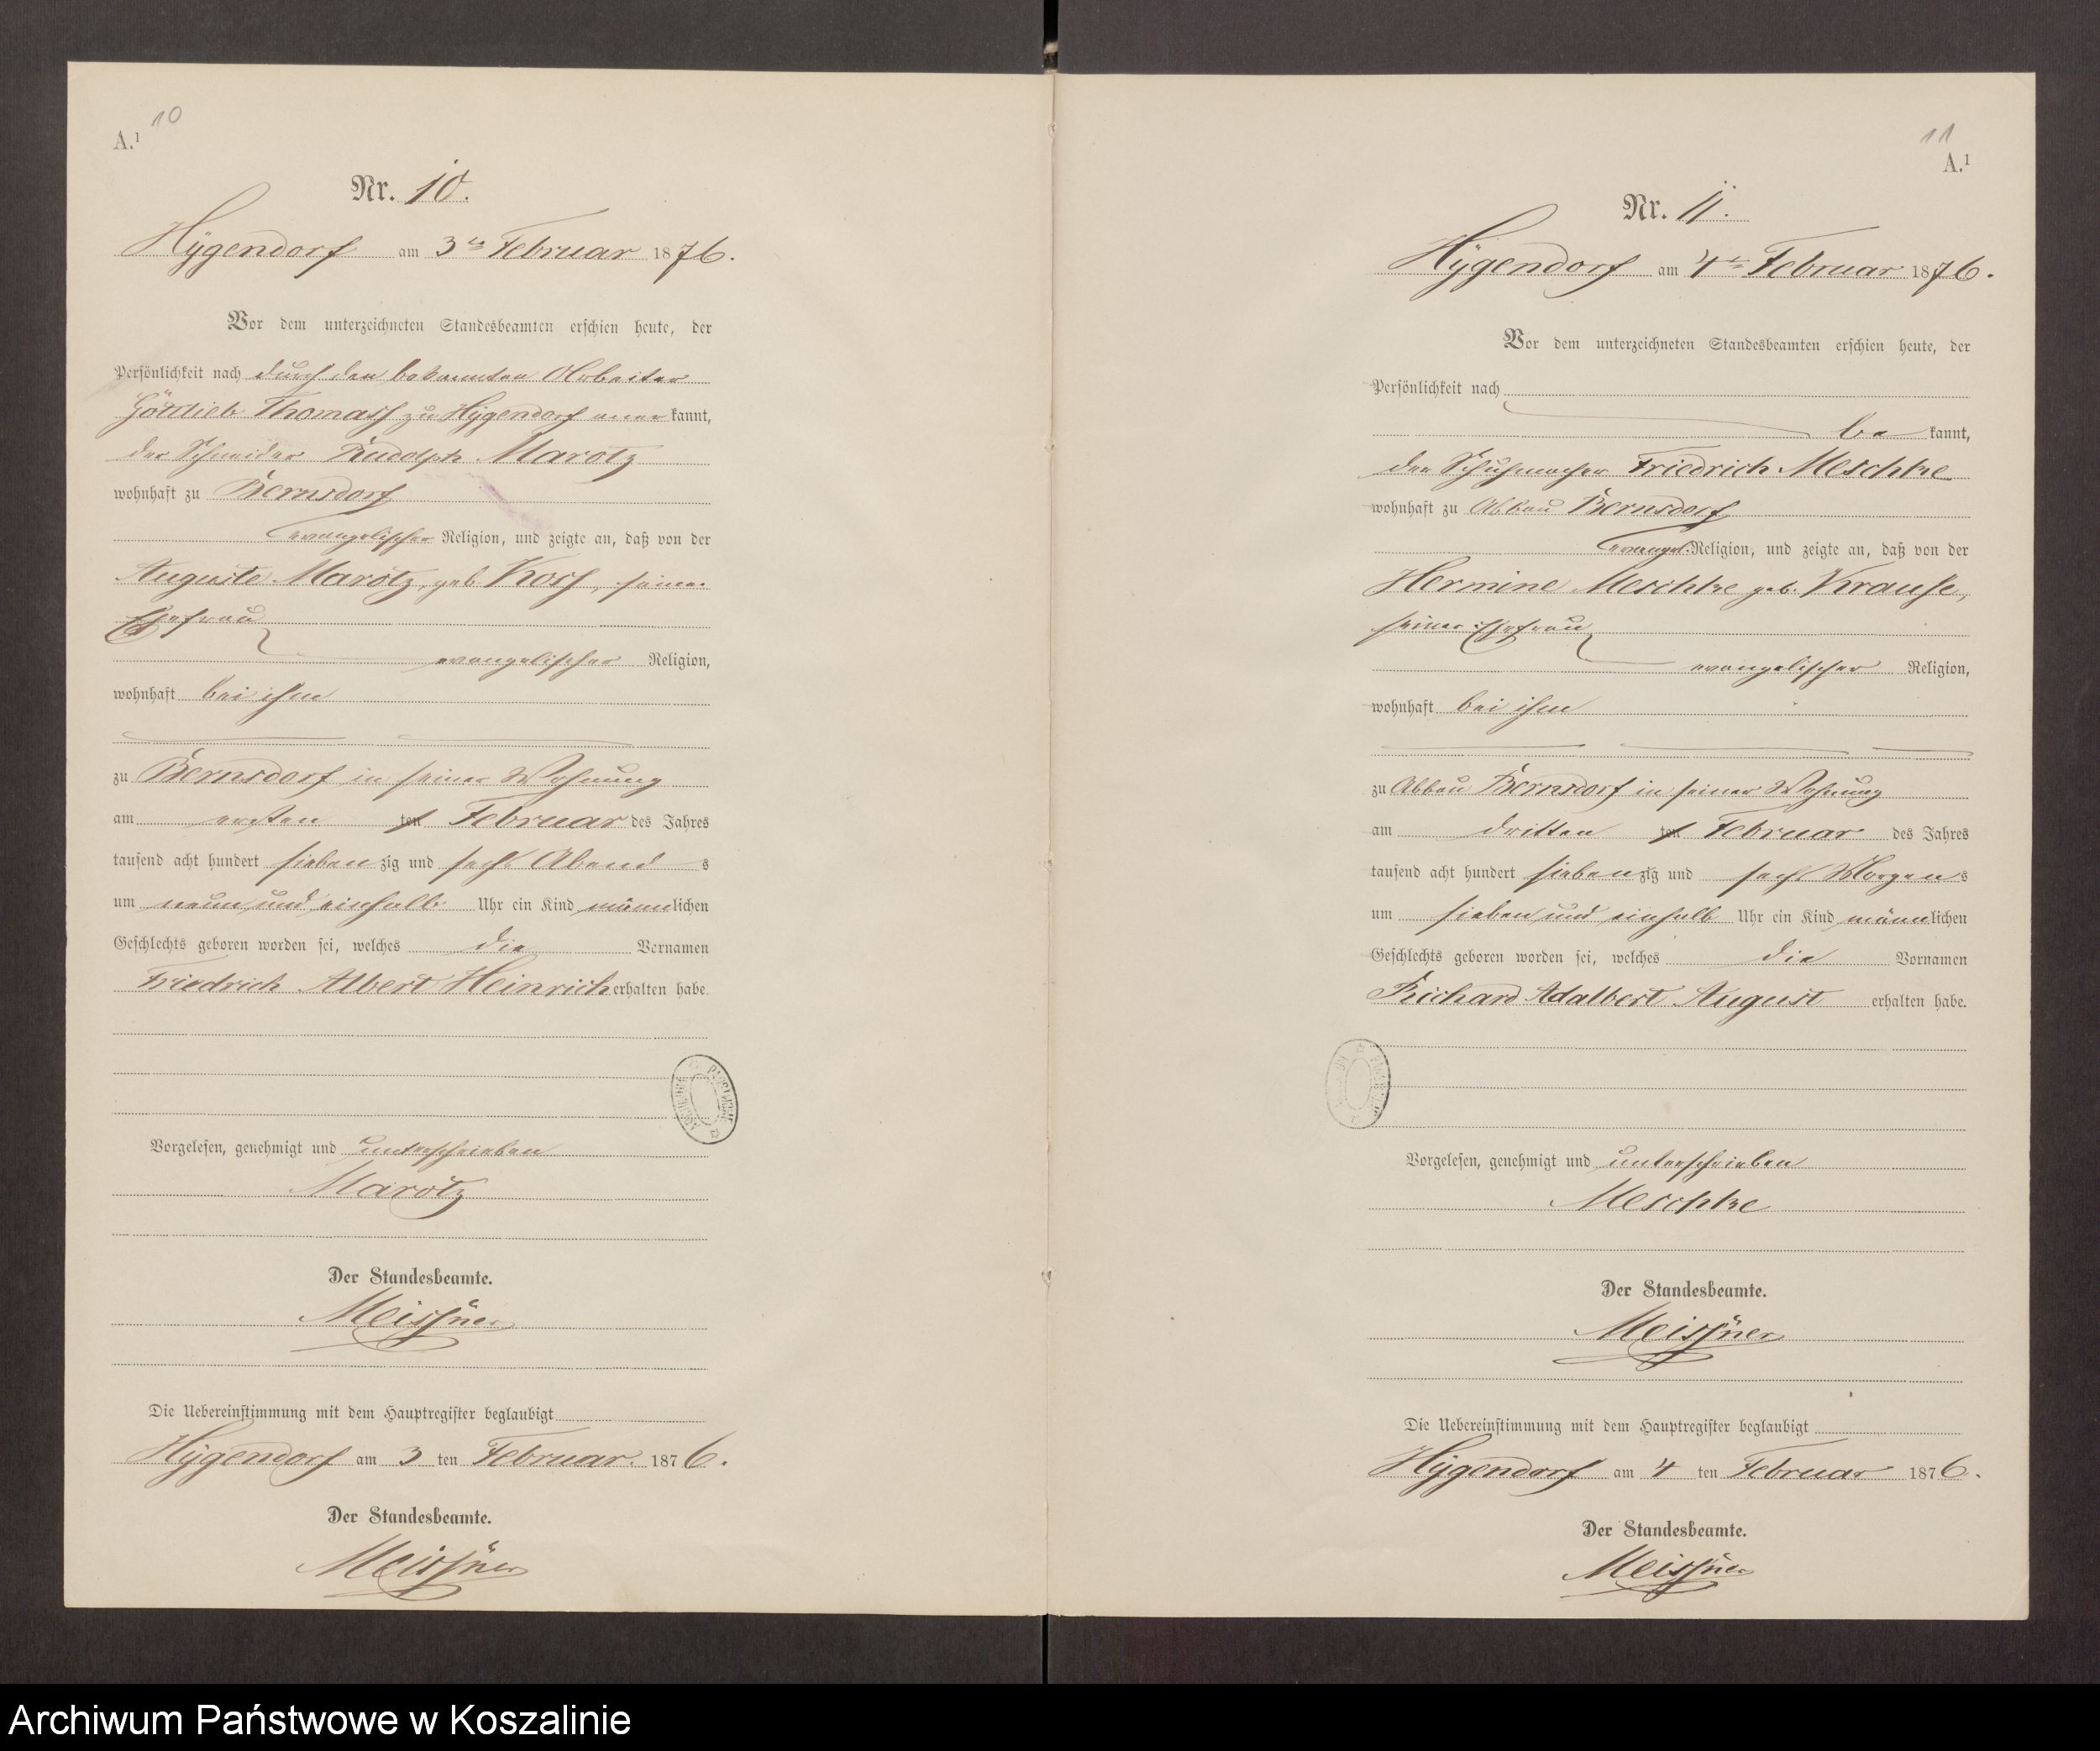 10
A.¹
Nr. 10.
Hÿgendorf am 3ten Februar 1876.
Vor dem unterzeichneten Standesbeamten erschien heute, der
Persönlichkeit nach durch den bekannten Arbeiter
Gottlieb Thomass zu Hÿgendorf aner kannt,
der Schneider Rudolph Marotz
wohnhaft zu Bernsdorf
evangelischer Religion, und zeigte an, daß von der
Auguste Marotz, geb. Koss, seiner
Ehefrau
evangelischer Religion,
wohnhaft bei ihm
zu Bernsdorf in seiner Wohnung
am ersten ten Februar des Jahres
tausend acht hundert sieben zig und sechs Abend s
um neun und einhalb Uhr ein Kind männlichen
Geschlechts geboren worden sei, welches die Vornamen
Friedrich Albert Heinrich erhalten habe.
Vorgelesen, genehmigt und unterschrieben
Marotz
Der Standesbeamte.
Meissner
Die Uebereinstimmung mit dem Hauptregister beglaubigt
Hÿgendorf am 3 ten Februar. 1876.
Der Standesbeamte.
Meissner
11
A.¹
Nr. 11.
Hÿgendorf am 4ten Februar 1876.
Vor dem unterzeichneten Standesbeamten erschien heute, der
Persönlichkeit nach
be kannt,
der Schuhmacher Friedrich Meschke
wohnhaft zu Abbau Bernsdorf
evangel. Religion, und zeigte an, daß von der
Hermine Meschke geb. Krause,
seiner Ehefrau
evangelischer Religion,
wohnhaft bei ihm
zu Abbau Bernsdorf in seiner Wohnung
am dritten ten Februar des Jahres
tausend acht hundert sieben zig und sechs Morgen s
um sieben und einhalb Uhr ein Kind männlichen
Geschlechts geboren worden sei, welches die Vornamen
Richard Adalbert August erhalten habe.
Vorgelesen, genehmigt und unterschrieben
Meschke
Der Standesbeamte.
Meissner
Die Uebereinstimmung mit dem Hauptregister beglaubigt
Hÿgendorf am 4 ten Februar 1876.
Der Standesbeamte.
Meissner
Archiwum Państwowe w Koszalinie